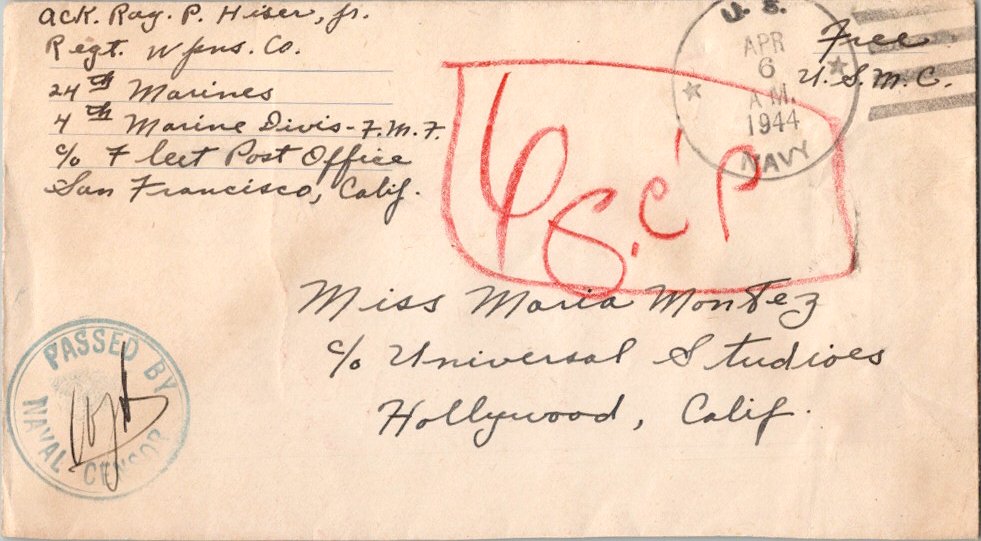 ack. Ray. P. Hiser, Jr.
Regt. Wpns. Co.
24th Marines
4th Marine Divis-F.M.F.
c/o Fleet Post Office
San Francisco, Calif.
U.S.
APR
6
A.M.
1944
NAVY
Free
U.S.M.C.
Miss Maria Montez
c/o Universal Studioes
Hollywood, Calif.
PASSED BY
NAVAL CENSOR